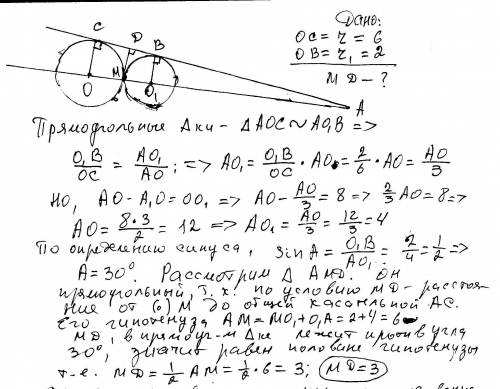 Дано:
OC = r = 6
OB = r₁ = 2
MD - ?
C D B
M
O O₁ A
Прямоугольные Δ-ки - ΔAOC ~ AO₁B =>
O₁B/OC = AO₁/AO; => AO₁ = O₁B/OC · AO = 2/6 · AO = AO/3
Но, AO - A₁O = OO₁ => AO - AO/3 = 8 => 2/3 AO = 8 =>
AO = 8·3/2 = 12 => AO₁ = AO/3 = 12/3 = 4
По определению синуса, sin A = O₁B/AO₁ = 2/4 = 1/2 =>
A = 30°. Рассмотрим Δ AMD. Он
прямоугольный, т.к. по условию MD - расстоя-
ние от (·) M до общей касательной AC.
Его гипотенуза AM = MO₁ + O₁A = 2 + 4 = 6
MD, в прямоуг-м Δ-ке лежит против угла
30°, значит равен половине гипотенузы
т.е. MD = 1/2 AM = 1/2 · 6 = 3; MD = 3